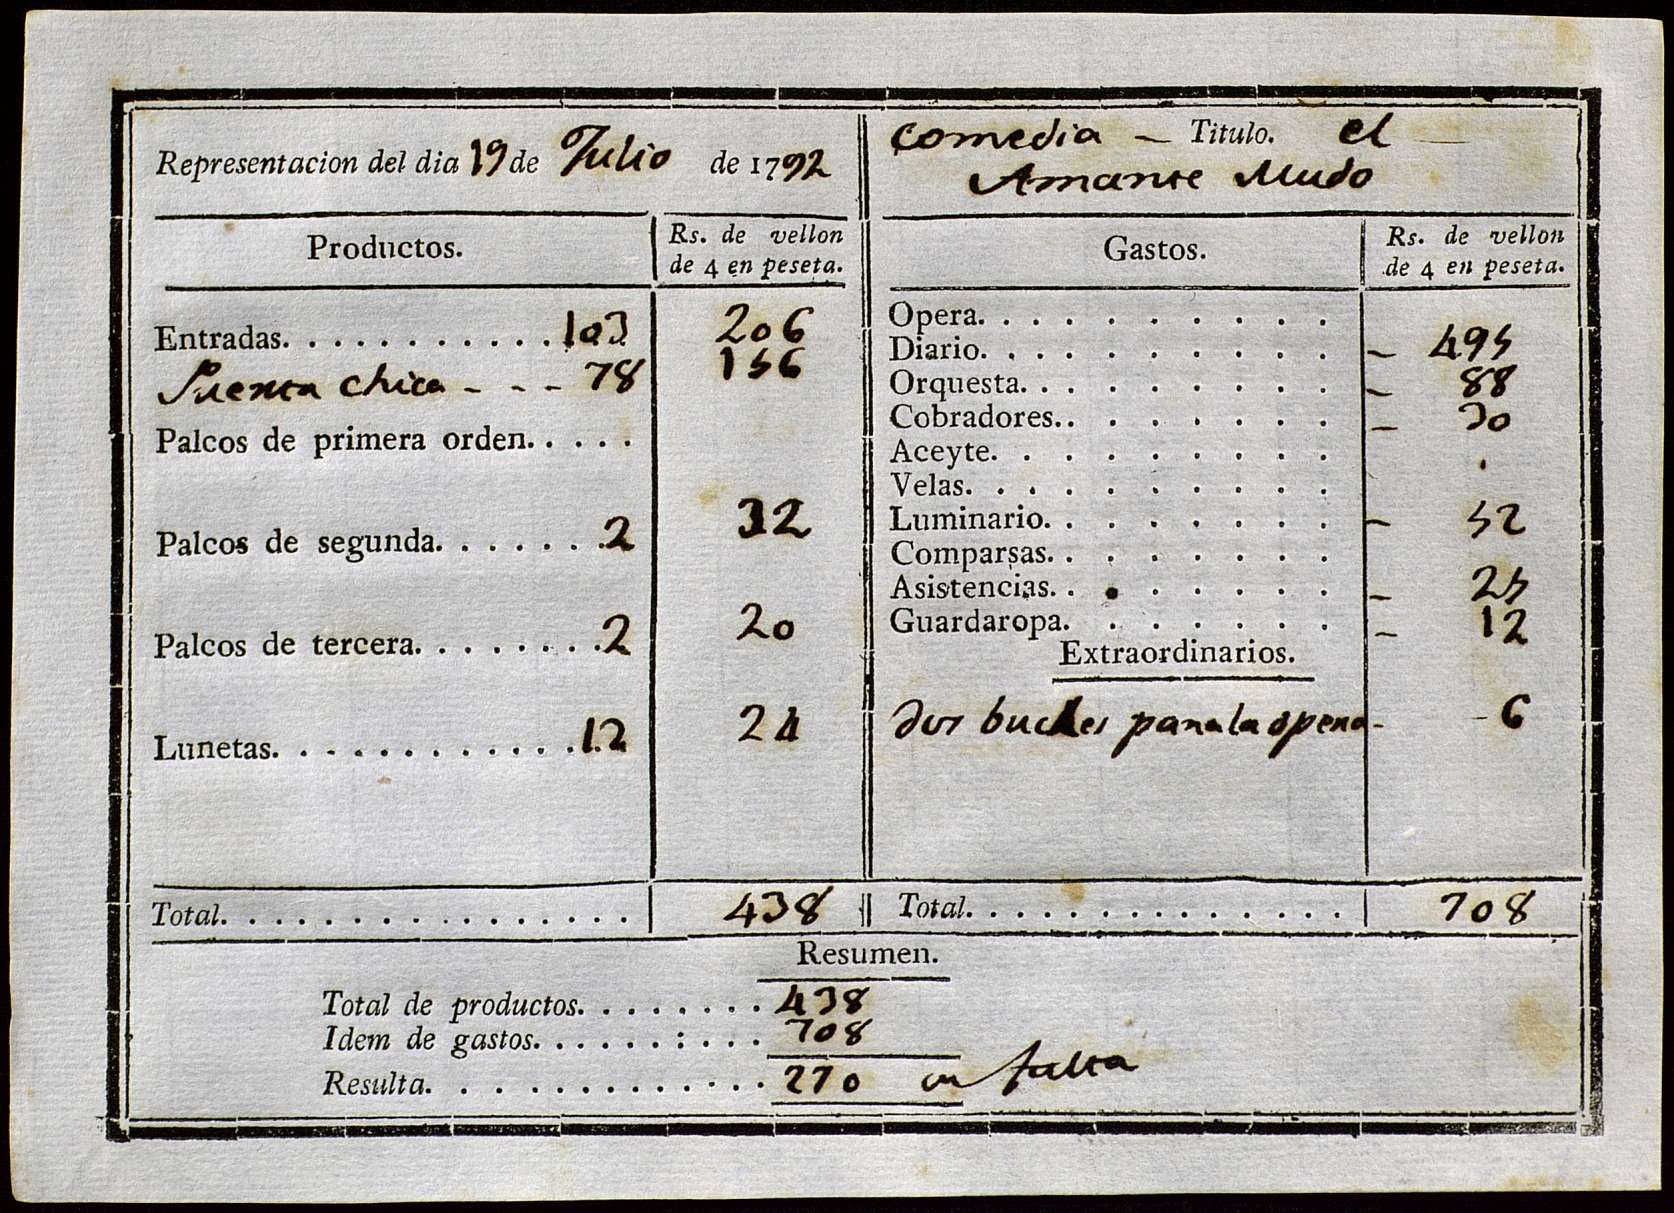 Representacion del dia 19 de Julio de 1792
comedia — Titulo. el —
Amante Mudo
Productos.
Rs. de vellon
de 4 en peseta.
Entradas. . . . . . . . . . . . 103 206
Puerta chica - - - 78 156
Palcos de primera orden. . . . .
Palcos de segunda. . . . . . . 2 32
Palcos de tercera. . . . . . . . 2 20
Lunetas. . . . . . . . . . . . 12 24
Total. . . . . . . . . . . . . . . . 438
Gastos.
Rs. de vellon
de 4 en peseta.
Opera. . . . . . . . . .
Diario. . . . . . . . . . - 495
Orquesta. . . . . . . . . - 88
Cobradores. . . . . . . . - 30
Aceyte. . . . . . . . .
Velas. . . . . . . . . .
Luminario. . . . . . . . - 52
Comparsas. . . . . . . .
Asistencias. . . . . . . . - 25
Guardaropa. . . . . . . - 12
Extraordinarios.
dos buches para la opera - - 6
Total. . . . . . . . . . . . . . . 708
Resumen.
Total de productos. . . . . . . . 438
Idem de gastos. . . . . . : . . . 708
Resulta. . . . . . . . . . . . . 270 en falta